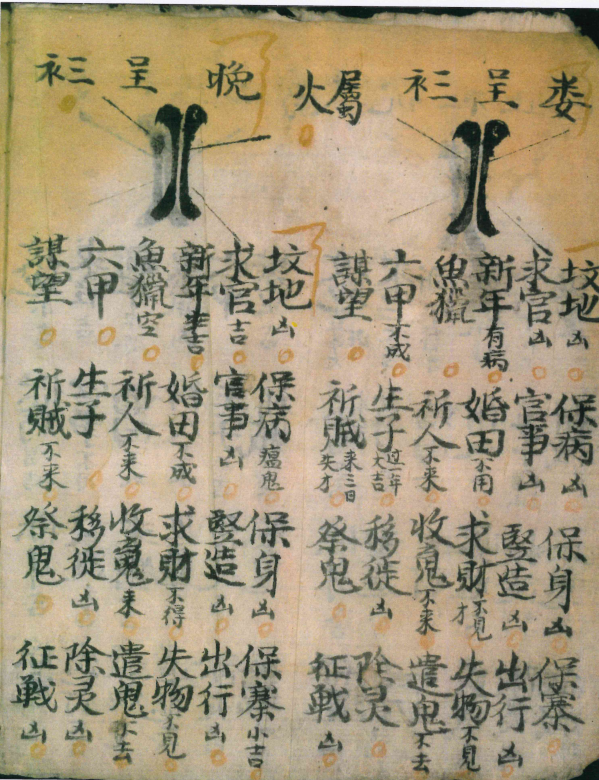 娄呈衤三
屬火
坟地凶 保病凶 保身凶 保寨
求官凶 官事凶 竪造凶 出行凶
新年有病 婚田不用 求財不見才 失物不見
魚獵 祈人不来 收鬼不来 遣鬼不去
六甲不成 生子过一年大吉 移徙凶 除灵
謀望 祈賊来三日失才 祭鬼 征戰凶
晚呈衤三
坟地凶 保病瘟鬼 保身凶 保寨小吉
求官吉 官事凶 竪造凶 出行凶
新年半吉 婚田不成 求財不得 失物不見
魚獵空 祈人不来 收鬼来 遣鬼不去
六甲 生子 移徙凶 除灵凶
謀望 祈賊不来 祭鬼 征戰凶